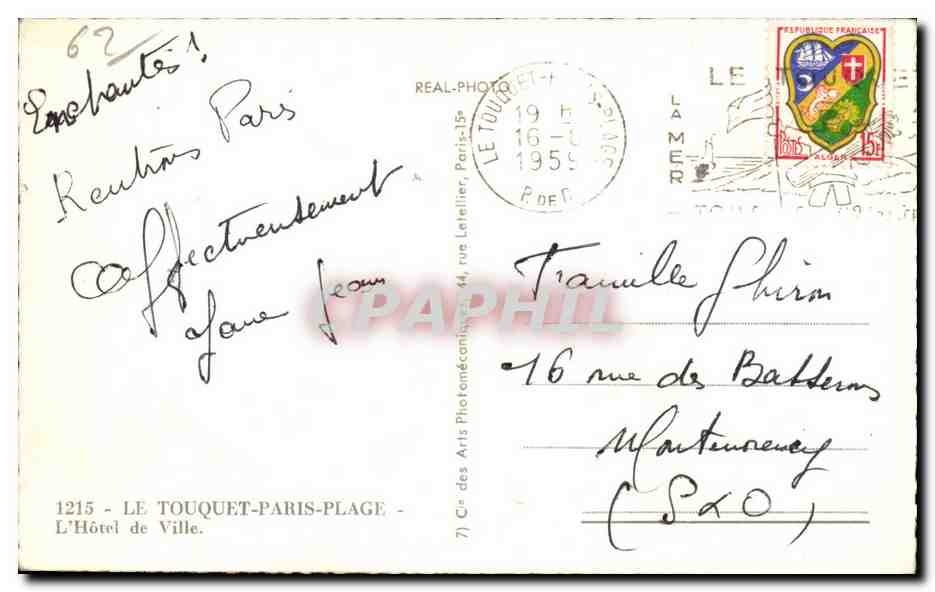 62
Enchantés !
Rentrons Paris
affectueusement
Jean
1215 - LE TOUQUET-PARIS-PLAGE -
L'Hôtel de Ville.
REAL-PHOTO
7) Cie des Arts Photomécaniques, 44, rue Letellier, Paris-15e
LE TOUQUET-P
19 H
16 - 8
1959
P. DE C.
LE TOU
LA MER
REPUBLIQUE FRANÇAISE
POSTES
15F
ALGER
Famille Ghiron
16 rue des
Montmorency
(S & O)
CPAPHIL